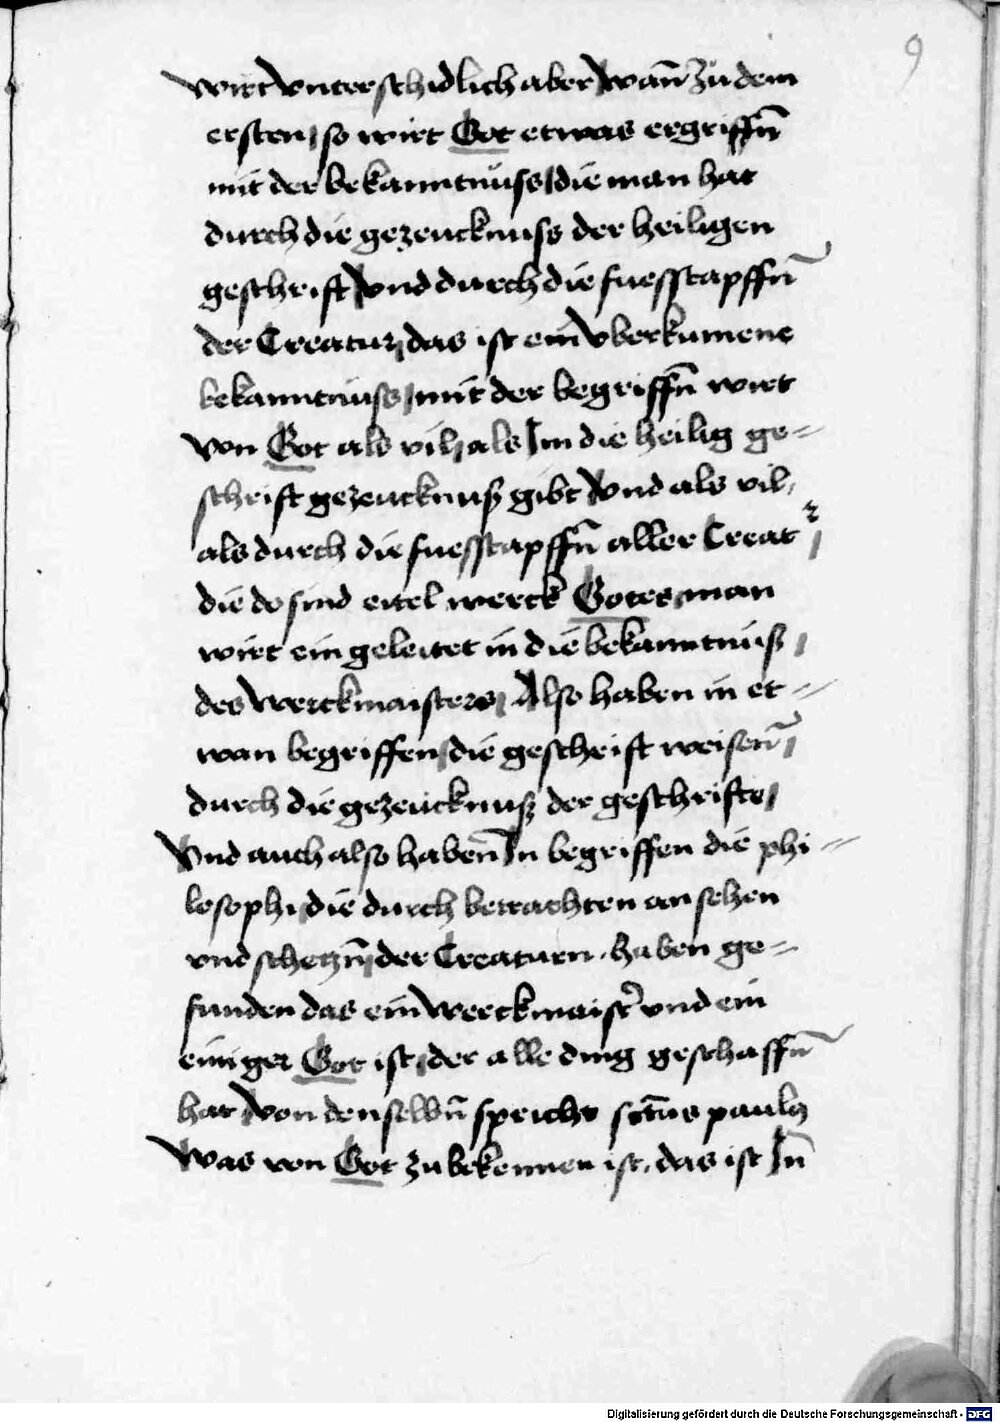 9
wirt vnterschidlich aber wan̄ zu dem
ersten so wirt Got etwas ergriffn̄
mit der bekanntnüss die man hat
durch die gezeucknuss der heiligen
geschrift vnd durch die fuesstapffn̄
der Creatur das ist ein vberkumene
bekanntnüss mit der begriffn̄ wirt
von Got als vil als Im die heilig ge=
schrift gezeucknuß gibt vnd als vil
als durch die fuesstapffn̄ aller Creat
die do sind eitel werck Gotes man
wirt ein geleitet in die bekanntnüß
des werckmaisters Also haben in et=
wan begriffen die geschrift weisen̄
durch die gezeucknuß der geschrifte
Vnd auch also haben In begriffen die phi=
losophi die durch betrachten an sehen
vnd schetzn̄ der Creaturn haben ge=
funden das ein werckmaist̓ vnd ein
einiger Got ist der alle ding geschaffn̄
hat von denselbn̄ spricht sctūs paulꝰ
Was von Got zu bekennen ist das ist In̄
Digitalisierung gefördert durch die Deutsche Forschungsgemeinschaft - DFG